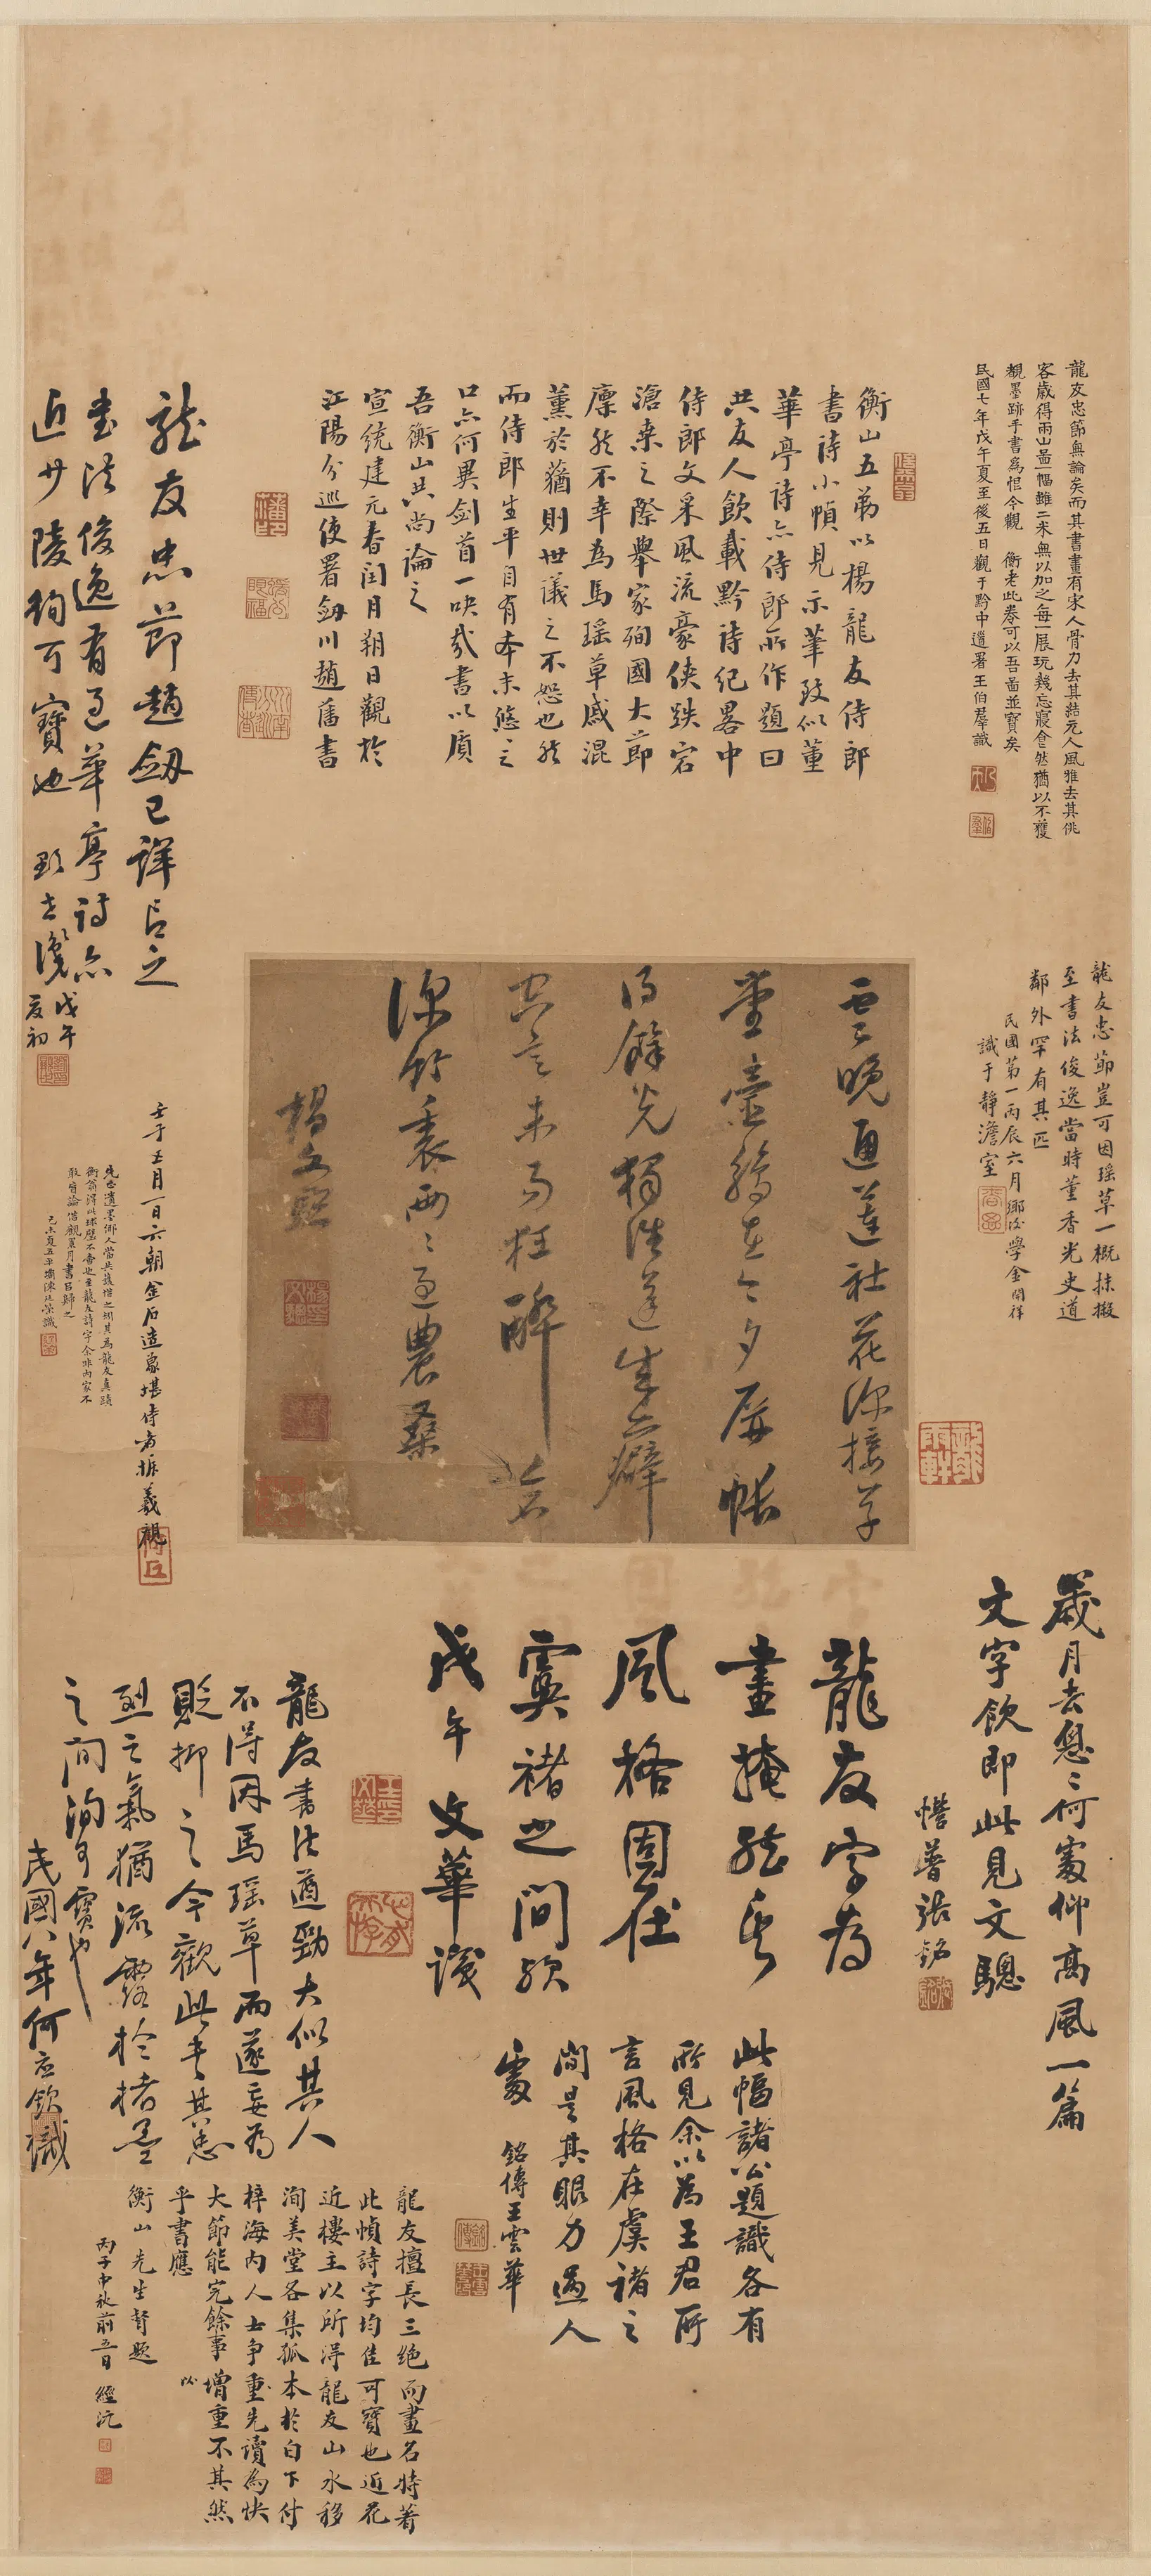 龍友忠節無論矣而其書畫有宋人骨力去其結元人風雅去其佻
客歲得兩山啚一幅雖二米無以加之每一展玩幾忘寢食然猶以不獲
覩墨跡手書為恨今觀 衡老此卷可以吾啚並寶矣
民國七年戊午夏至後五日觀于黔中道署王伯群識
衡山五弟以楊龍友侍郎
書詩小幀見示筆致似董
華亭詩亦侍郎所作題曰
共友人飲載黔詩紀畧中
侍郎文采風流豪俠跌宕
滄桑之際舉家殉國大節
凜然不幸為馬瑤草戚混
薰於蕕則世議之不恕也然
而侍郎生平自有本末悠悠之
口亦何異劍首一吷哉書以質
吾衡山共尚論之
宣統建元春閏月朔日觀於
江陽分巡使署劒川趙藩書
龍友忠節趙劒已詳言之
書法俊逸有過華亭詩亦
近少陵洵可寶也
戊午
夏初
龍友忠節豈可因瑤草一概抹摋
至書法俊逸當時董香光史道
鄰外罕有其匹
民國第一丙辰六月鄉後學金開祥
識于靜澹室
雲晚通蓮社花深接草
堂壺觴在今夕屏帳
得餘光獨往蓬生癖
忘言未可狂醉
深竹裏雨雨過農桑
楊文驄
壬子五月一日六朝金石造象堪侍者振羲觀
歲月去悤悤何處仰高風一篇
文字飲即此見文驄
懵菩張銘
龍友字為
畫掩然其
風格固在
虞褚之間欤
戊午文華識
龍友書法遒勁大似其人
不得因馬瑤草而遂妄為
貶抑之今觀此其忠
烈之氣猶流露於楮墨
之間洵可寶也
民國八年何應欽識
此幅諸公題識各有
所見余以為王君所
言風格在虞褚之
間是其眼力過人
處 銘傳王雲華
龍友擅長三絕而畫名特著
此幀詩字均佳可寶也近花
近樓主以所得龍友山水移
洵美堂各集孤本於白下付
梓海內人士爭重先讀為快
大節能完餘事以增重不其然
乎書應
衡山先生督題
丙子中秋前五日 經沅